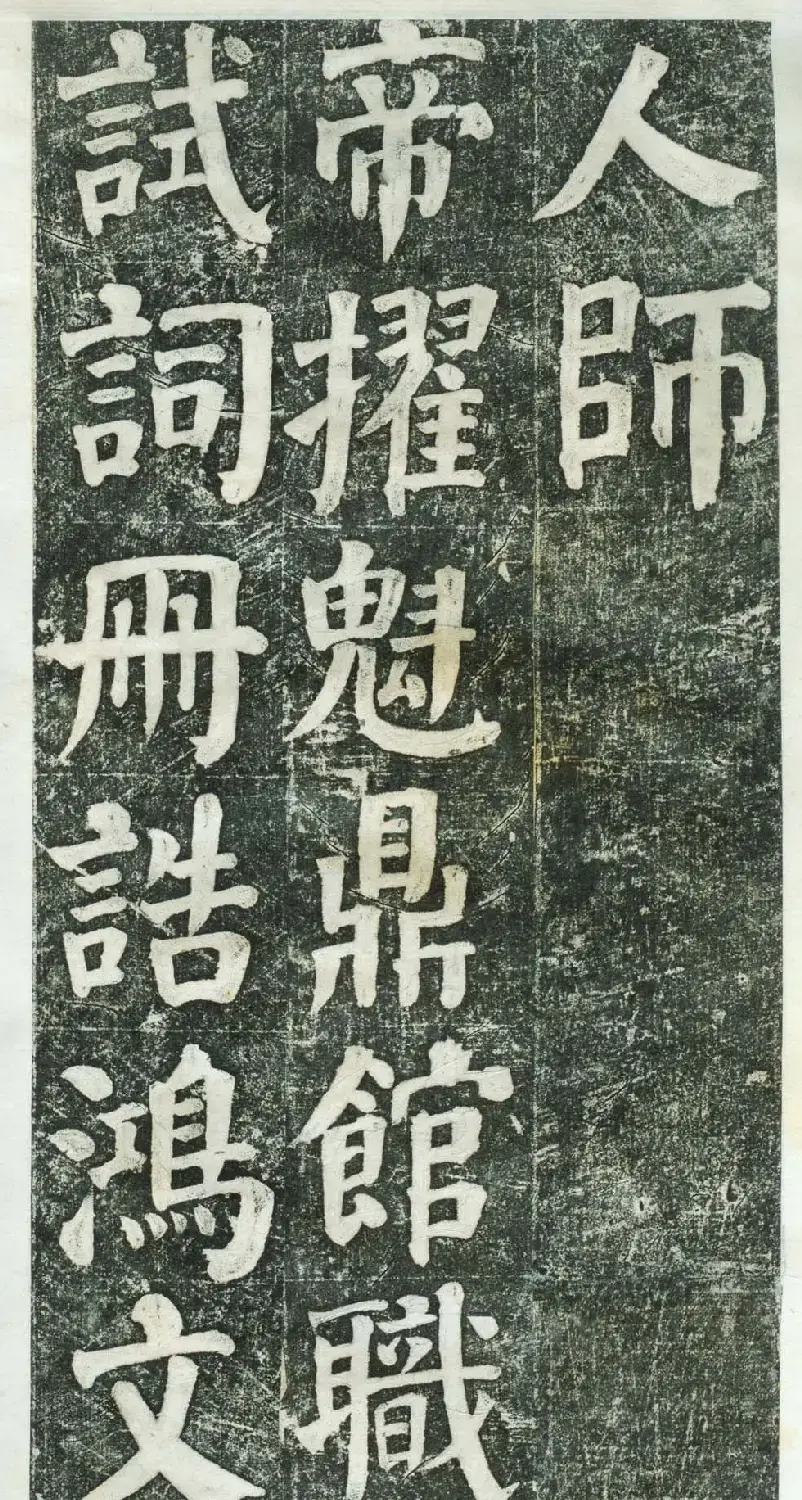 人師
帝擢魁鼎館職
試詞冊誥鴻文